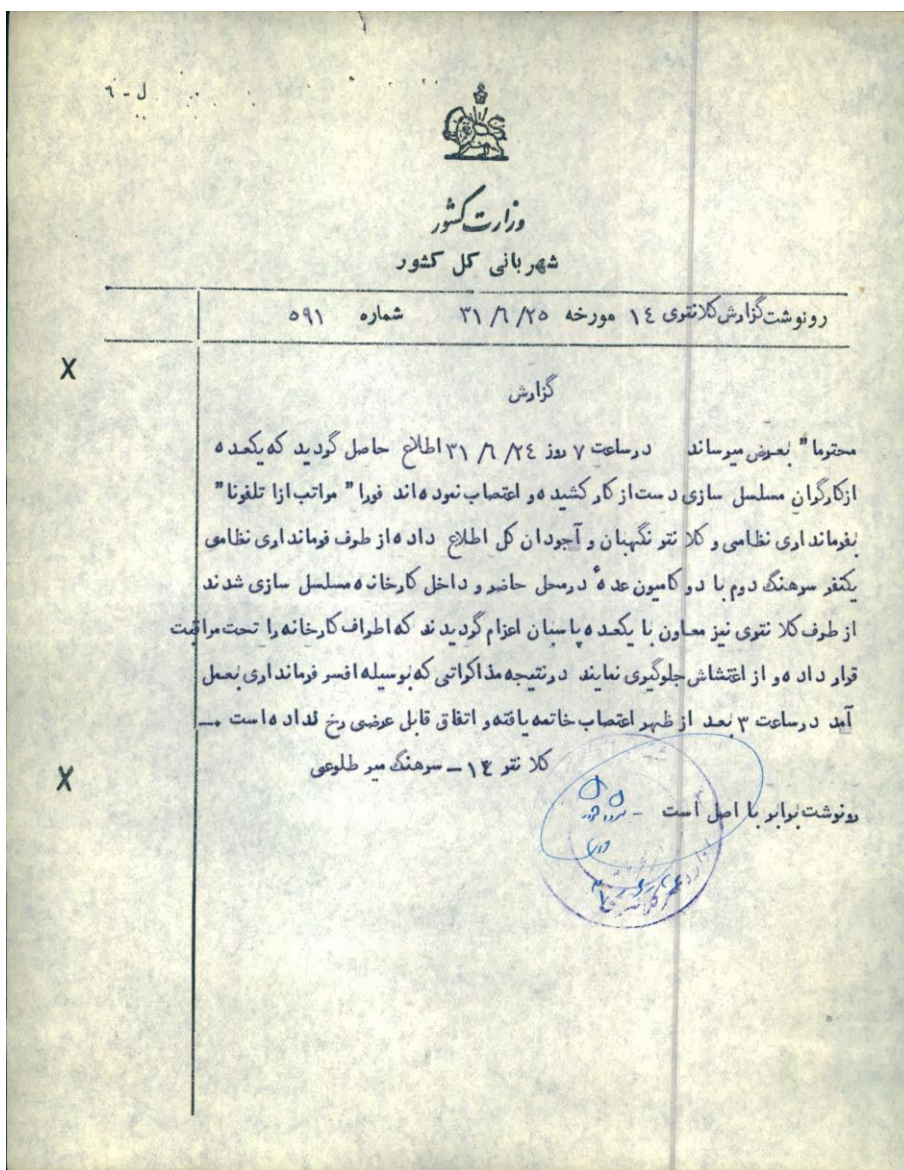 ل - ٦
وزارت کشور
شهربانی کل کشور
رونوشت گزارش کلانتری ١٤ مورخه ٣١/٦/٢٥ شماره ٥٩١
گزارش
محترما" بعرض میرساند درساعت ٧ روز ٣١/٦/٢٤ اطلاع حاصل گردید که یکعده
ازکارگران مسلسل سازی دست از کار کشیده و اعتصاب نموده اند فورا" مراتب ازا تلفونا"
بفرمانداری نظامی و کلانتر نگهبان و آجودان کل اطلاع داده از طرف فرمانداری نظامی
یکنفر سرهنگ دوم با دو کامیون عدهٔ درمحل حاضر و داخل کارخانه مسلسل سازی شدند
از طرف کلانتری نیز معاون با یکعده پاسبان اعزام گردیدند که اطراف کارخانه را تحت مراقبت
قرار داده و از اغتشاش جلوگیری نمایند درنتیجه مذاکراتی که بوسیله افسر فرمانداری بعمل
آمد درساعت ٣ بعد از ظهر اعتصاب خاتمه یافته و اتفاق قابل عرضی رخ نداده است ـــ
کلانتر ١٤ ـ سرهنگ میر طلوعی
رونوشت برابر با اصل است
X
X